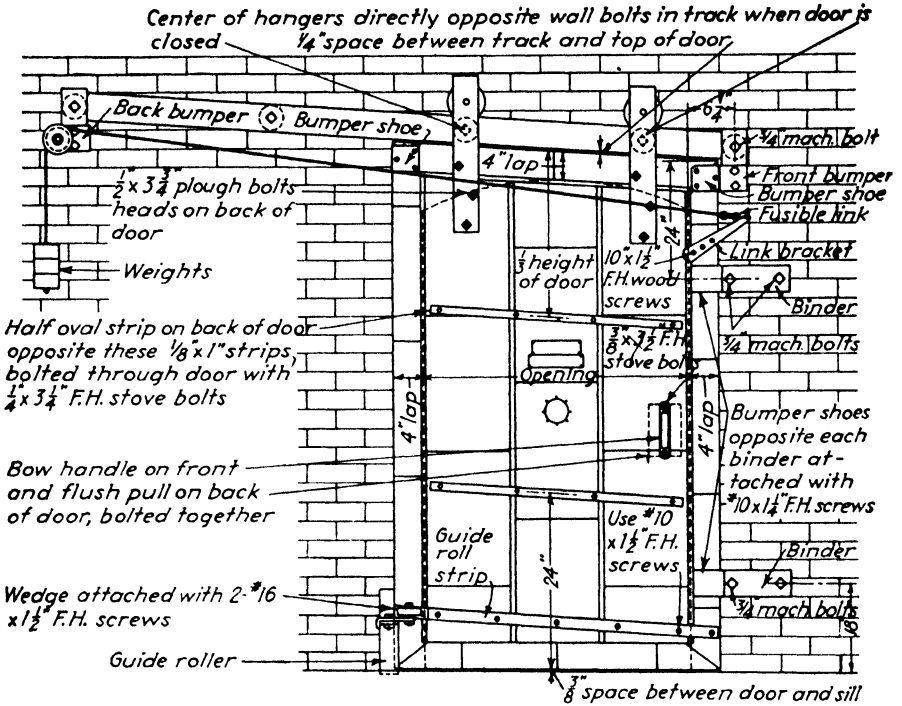 Center of hangers directly opposite wall bolts in track when door is
closed
1/4" space between track and top of door
6 1/4"
Back bumper
Bumper shoe
3/4 mach. bolt
4" lap
Front bumper
Bumper shoe
1/2" x 3 3/4" plough bolts
heads on back of
door
Fusible link
24"
Link bracket
Weights
1/3 height
of door
10" x 1 1/2"
F.H. wood
screws
Binder
3/4" mach. bolts
Half oval strip on back of door
opposite these 1/8" x 1" strips,
bolted through door with
1/4" x 3 1/4" F.H. stove bolts
3/8" x 3 1/2" F.H.
stove bolts
Opening
4" lap
4" lap
Bumper shoes
opposite each
binder at-
tached with
#10 x 1 1/4" F.H. screws
Bow handle on front
and flush pull on back
of door, bolted together
Use #10
x 1 1/2" F.H.
screws
Guide
roll
strip
24"
Binder
Wedge attached with 2-#16
x 1 1/2" F.H. screws
3/4" mach. bolts
18"
Guide roller
3/8" space between door and sill